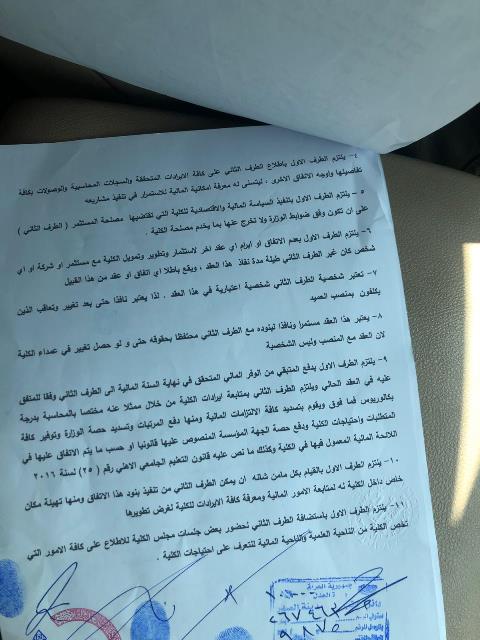 ٤- يلتزم الطرف الاول باطلاع الطرف الثاني على كافة الايرادات المتحققة والسجلات المحاسبية والوصولات بكافة
تفاصيلها واوجه الانفاق الاخرى . ليتسنى له معرفة امكانية المالية للاستمرار في تنفيذ مشاريعه
٥- يلتزم الطرف الاول بتنفيذ السياسة المالية والاقتصادية للكلية التي تقتضيها مصلحة المستثمر ( الطرف الثاني )
على ان تكون وفق ضوابط الوزارة ولا تخرج عنها بما يخدم مصلحة الكلية .
٦- يلتزم الطرف الاول بعدم الاتفاق او ابرام اي عقد اخر لاستثمار وتطوير وتمويل الكلية مع مستثمر او شركة او اي
شخص كان غير الطرف الثاني طيلة مدة نفاذ هذا العقد ، ويقع باطلا اي اتفاق او عقد من هذا القبيل
٧- تعتبر شخصية الطرف الثاني شخصية اعتبارية في هذا العقد . لذا يعتبر نافذا حتى بعد تغيير وتعاقب الذين
يكلفون بمنصب العميد
٨- يعتبر هذا العقد مستمرا ونافذا لبنوده مع الطرف الثاني محتفظا بحقوقه حتى و لو حصل تغيير في عمداء الكلية
لان العقد مع المنصب وليس الشخصية
٩- يلتزم الطرف الاول بدفع المتبقي من الوفر المالي المتحقق في نهاية السنة المالية الى الطرف الثاني وفقا للمتفق
عليه في العقد الحالي ويلتزم الطرف الثاني بمتابعة ايرادات الكلية من خلال ممثلا عنه مختصا بالمحاسبة بدرجة
بكالوريوس فما فوق ويقوم بتسديد كافة الالتزامات المالية ومنها دفع المرتبات وتسديد حصة الوزارة وتوفير كافة
المتطلبات واحتياجات الكلية ودفع حصة الجهة المؤسسة المنصوص عليها قانونيا او حسب ما يتم الاتفاق عليها في
اللائحة المالية المعمول فيها في الكلية وكذلك ما نص عليه قانون التعليم الجامعي الاهلي رقم ( ٢٥ ) لسنة ٢٠١٦
١٠- يلتزم الطرف الاول بالقيام بكل مامن شانه ان يمكن الطرف الثاني من تنفيذ بنود هذا الاتفاق ومنها تهيئة مكان
خاص داخل الكلية له لمتابعة الامور المالية ومعرفة كافة الايرادات للكلية لغرض تطويرها
١١- يلتزم الطرف الاول باستضافة الطرف الثاني لحضور بعض جلسات مجلس الكلية للاطلاع على كافة الامور التي
تخص الكلية من الناحية العلمية والناحية المالية للتعرف على احتياجات الكلية .